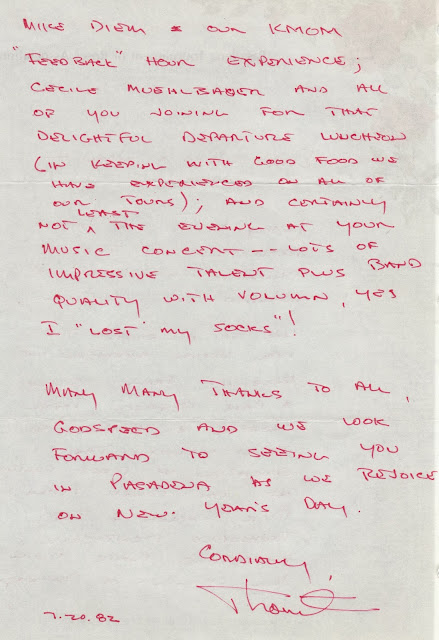 MIKE DIEM & OUR KMOM
"FEEDBACK" HOUR EXPERIENCE;
CECILE MUEHLBAUER AND ALL
OF YOU JOINING FOR THAT
DELIGHTFUL DEPARTURE LUNCHEON
(IN KEEPING WITH GOOD FOOD WE
HAVE EXPERIENCED ON ALL OF
OUR TOURS); AND CERTAINLY
NOT ^ LEAST THE EVENING AT YOUR
MUSIC CONCERT -- LOTS OF
IMPRESSIVE TALENT PLUS BAND
QUALITY WITH VOLUMN, YES
I "LOST MY SOCKS"!
MANY MANY THANKS TO ALL,
GODSPEED AND WE LOOK
FORWARD TO SEEING YOU
IN PASADENA AS WE REJOICE
ON NEW YEAR'S DAY.
CORDIALLY,
7.20.82